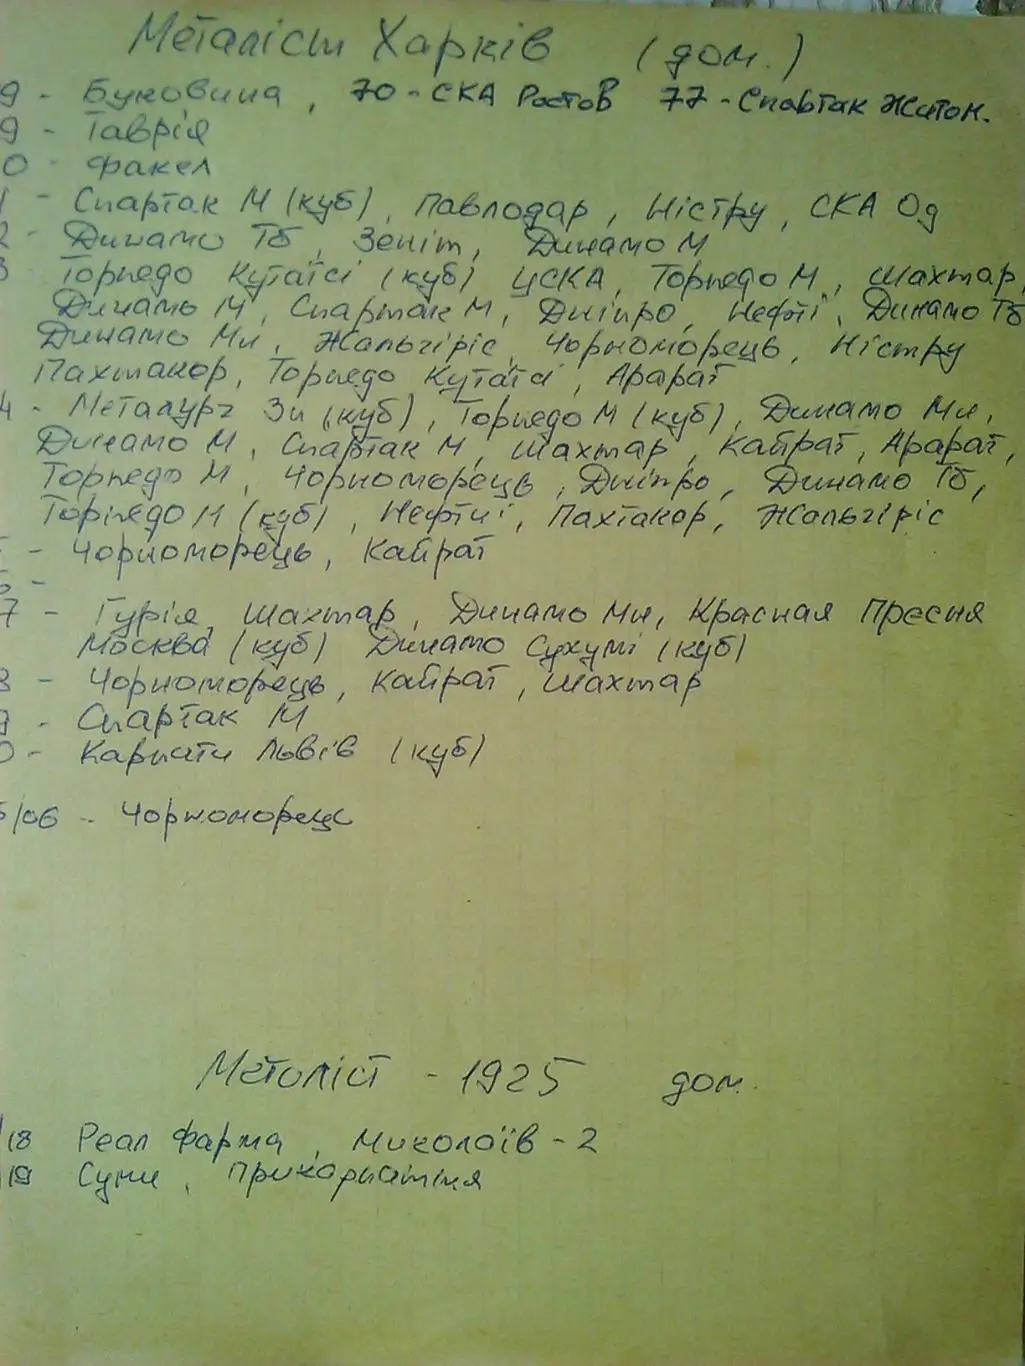 Металіст Харків (дом.)
9 - Буковина, 70 - СКА Ростов 77 - Спартак Житом.
9 - Таврія
0 - Факел
1 - Спартак М (куб), Павлодар, Ністру, СКА Од
2 - Динамо Тб, Зеніт, Динамо М
3 Торпедо Кутаїсі (куб) ЦСКА, Торпедо М, Шахтар,
Динамо М, Спартак М, Дніпро, Нефтчі, Динамо Тб
Динамо Мн, Жальгіріс, Чорноморець, Ністру
Пахтакор, Торпедо Кутаїсі, Арарат
4 - Металург Зп (куб), Торпедо М (куб), Динамо Мн,
Динамо М, Спартак М, Шахтар, Кайрат, Арарат,
Торпедо М, Чорноморець, Дніпро, Динамо Тб,
Торпедо М (куб), Нефтчі, Пахтакор, Жальгіріс
5 - Чорноморець, Кайрат
6 -
7 - Гурія, Шахтар, Динамо Мн, Красная Пресня
Москва (куб) Динамо Сухумі (куб)
8 - Чорноморець, Кайрат, Шахтар
9 - Спартак М
0 - Карпати Львів (куб)
5/06 - Чорноморець
Металіст - 1925 дом.
/18 Реал Фарма, Миколаїв - 2
/19 Суми, Прикарпаття